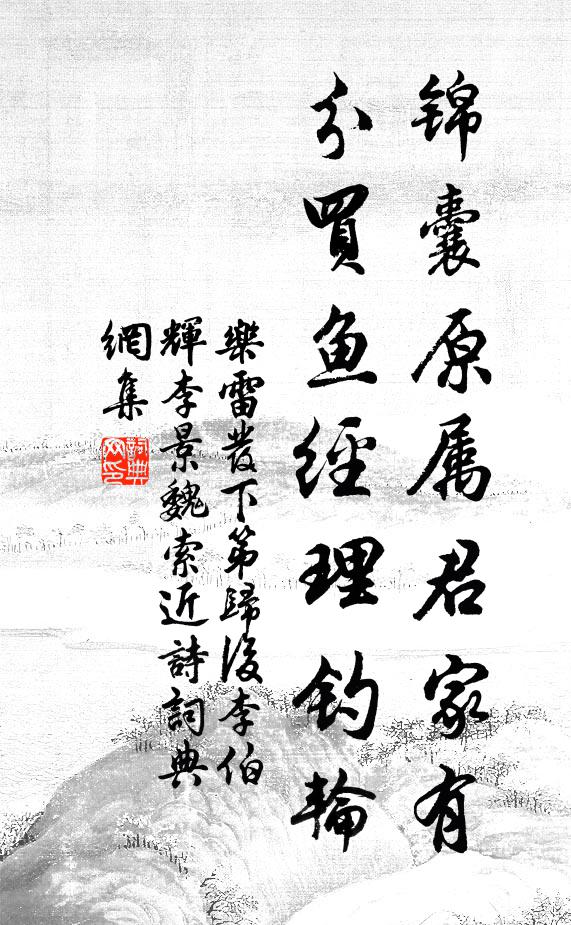 锦囊原属君家有
分買魚經理钓輪
樂雷發下第歸後李伯
輝李景魏索近詩詞典
網集
詞典